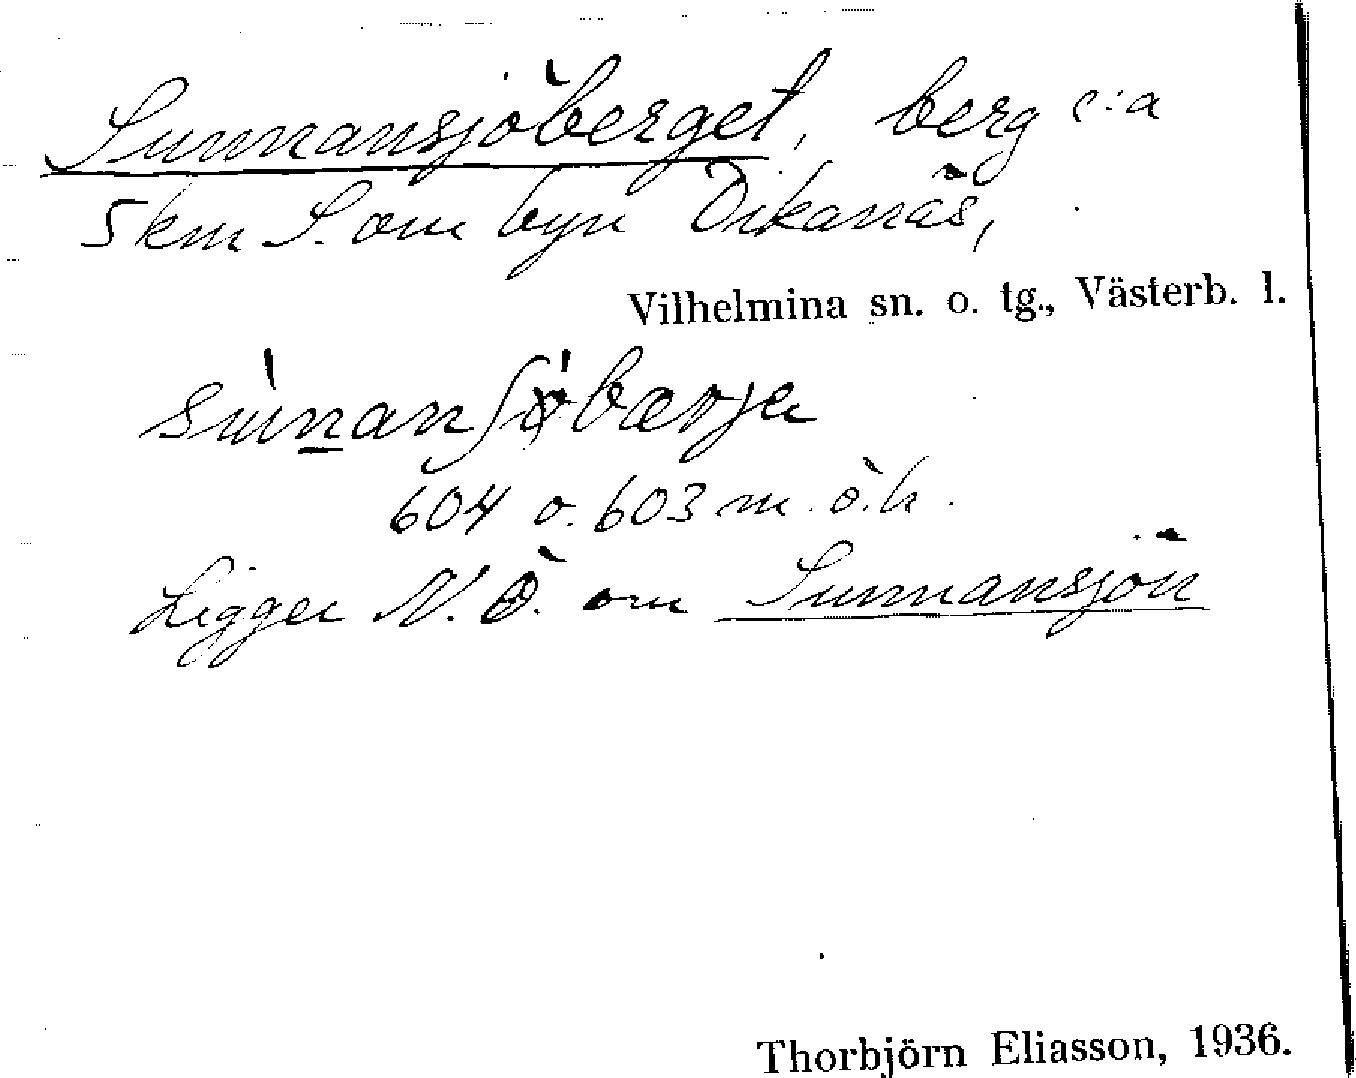 Sunnansjöberget, berg c:a
5 km S. om byn Dikanäs,
Vilhelmina sn. o. tg., Västerb. l.
604 o. 603 m. ö. h.
Ligger N. Ö. om Sunnansjön
Thorbjörn Eliasson, 1936.